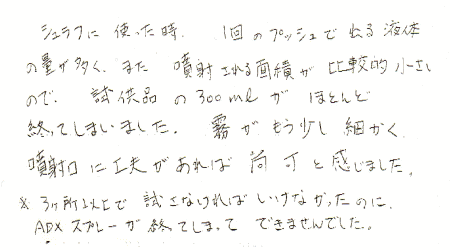 シュラフに使った時、1回のプッシュで出る液体
の量が多く、また噴射される面積が比較的小さい
ので、試供品の300mlがほとんど
終ってしまいました。霧がもう少し細かく、
噴射口に工夫があれば尚可と感じました。
※3ヶ所以上で試さなければいけなかったのに、
ADXスプレーが終てしまってできませんでした。